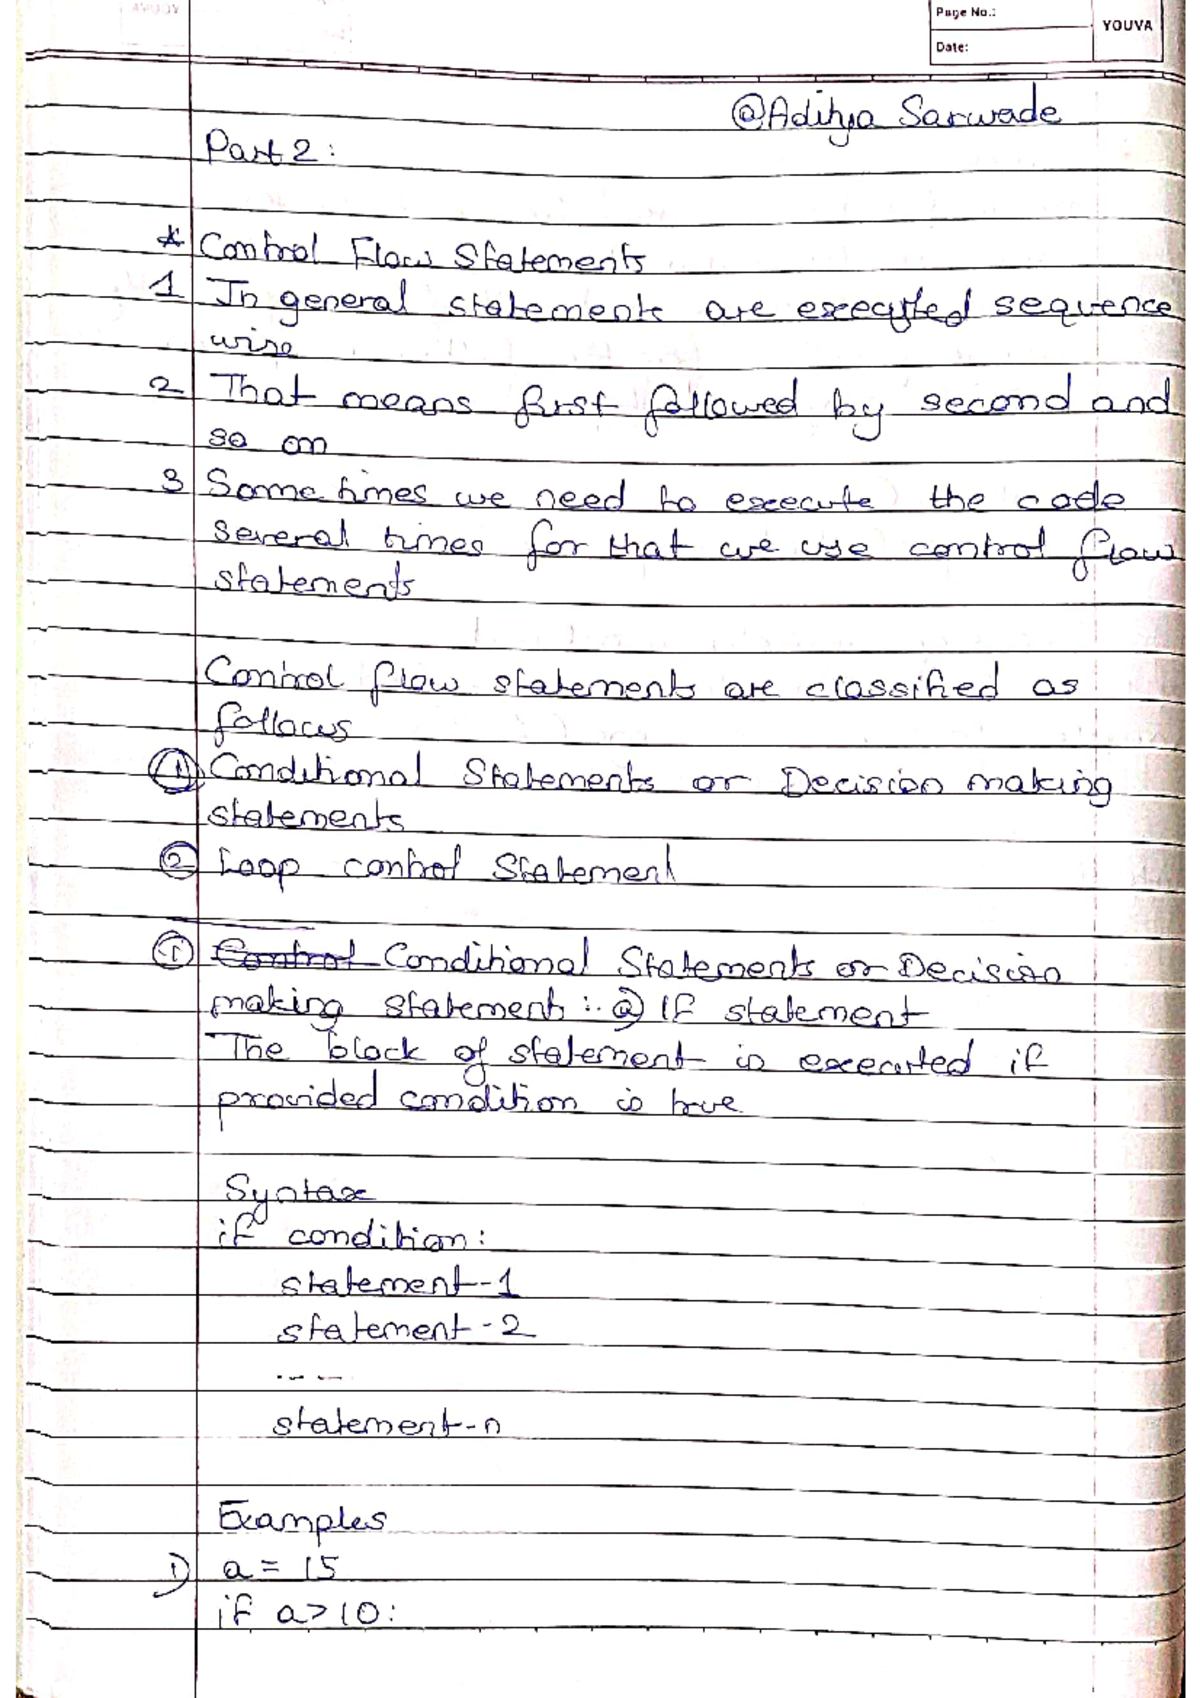 Page No.:
Date:
YOUVA
@Aditya Sarwade
Part 2:
* Control Flow Statements
1 In general statements are executed sequence
wise
2 That means first followed by second and
so on
3 Some times we need to execute the code
several times for that we use control flow
statements
Control flow statements are classified as
follows
① Conditional Statements or Decision making
statements
② Loop control Statement
① Control Conditional Statements or Decision
making statement :- ⓐ If statement
The block of statement is executed if
provided condition is true
Syntax
if condition:
statement-1
statement-2
----
statement-n
Examples
1) a = 15
if a>10: